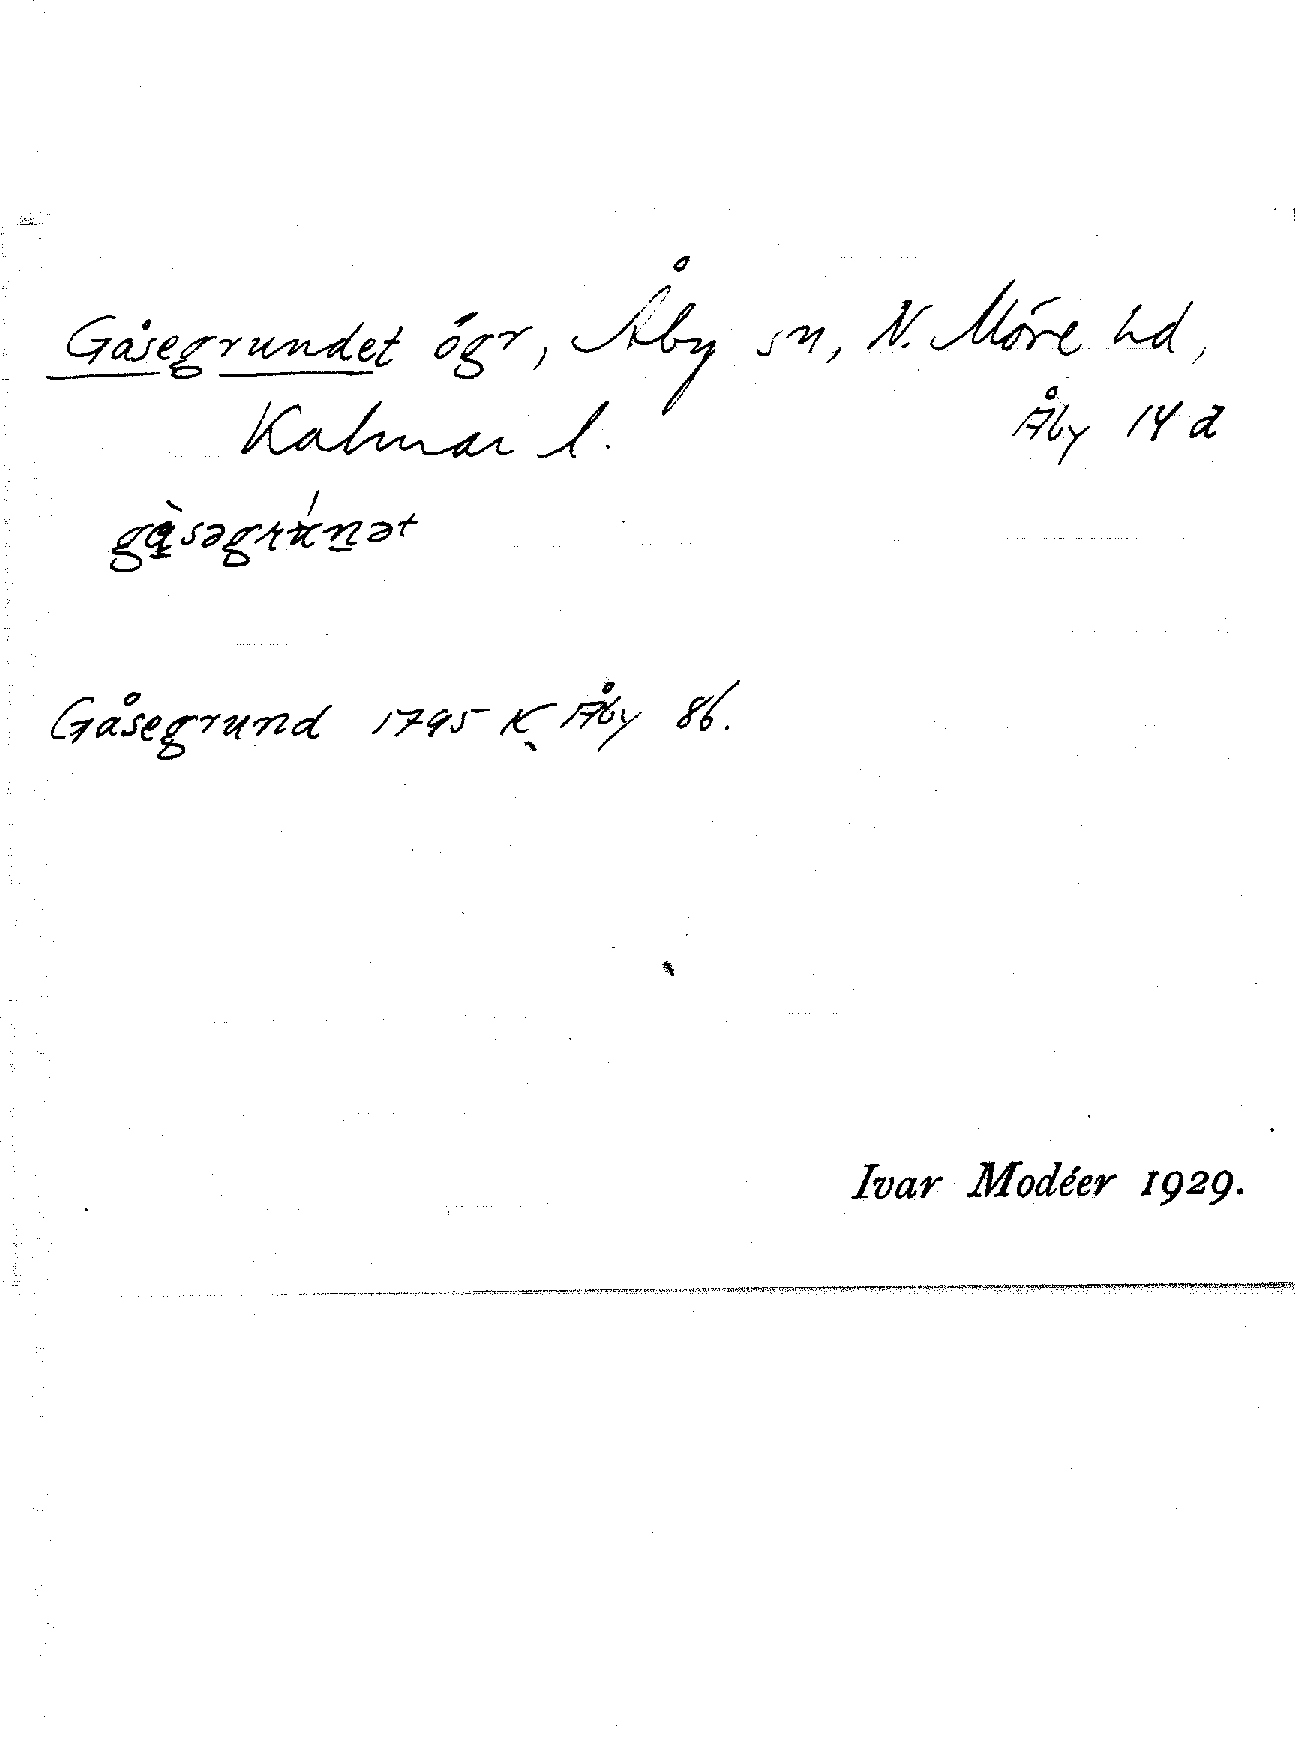 Gåsegrundet ögr, Åby sn, N. Möre hd,
Kalmar l. Åby 14 d
gåsegrund 1795 K Åby 86.
Ivar Modéer 1929.